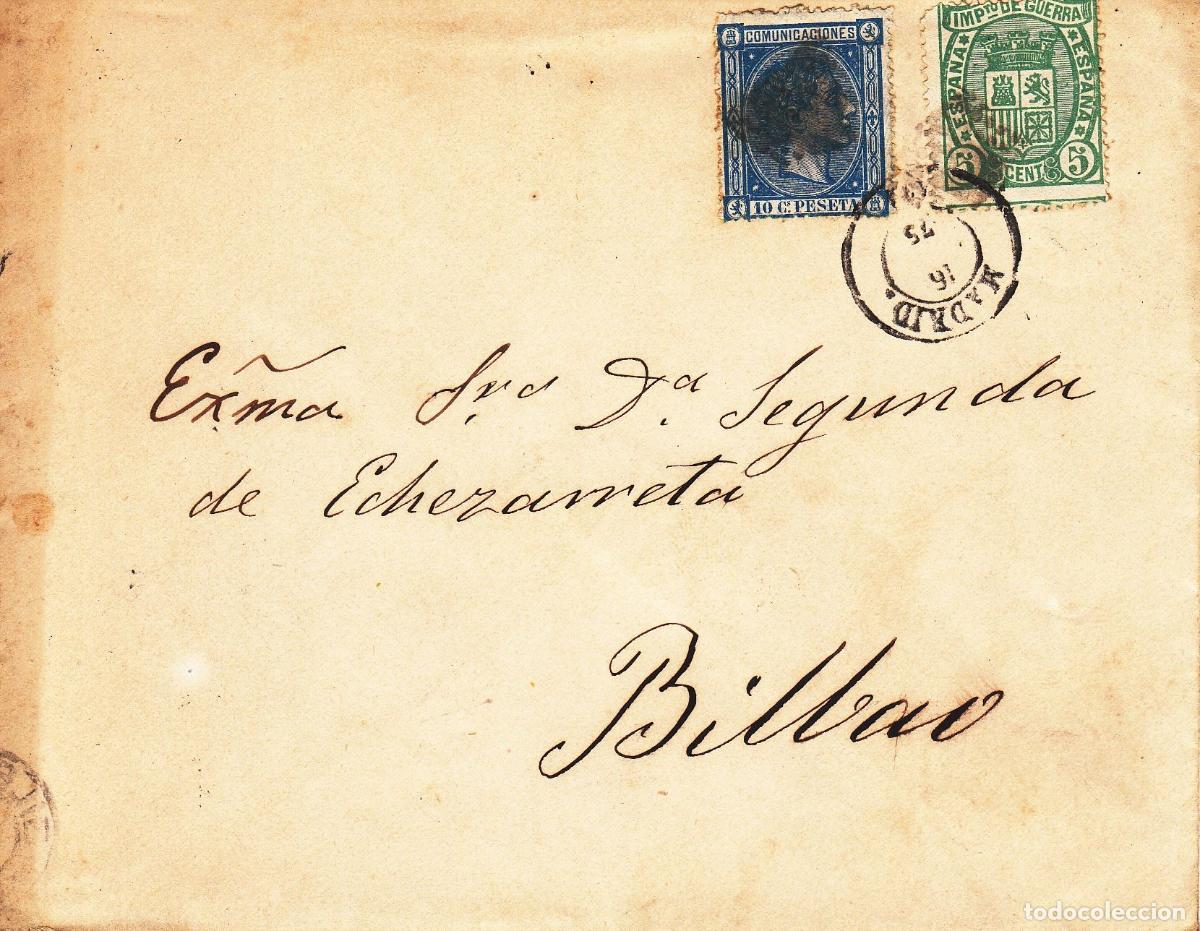 COMUNICACIONES
10 Cs PESETA
IMPTO DE GUERRA
ESPAÑA
ESPAÑA
5 CENT 5
MADRID.
16
75
Exma Sra Da. Segunda
de Echezarreta
Bilbao
todocoleccion